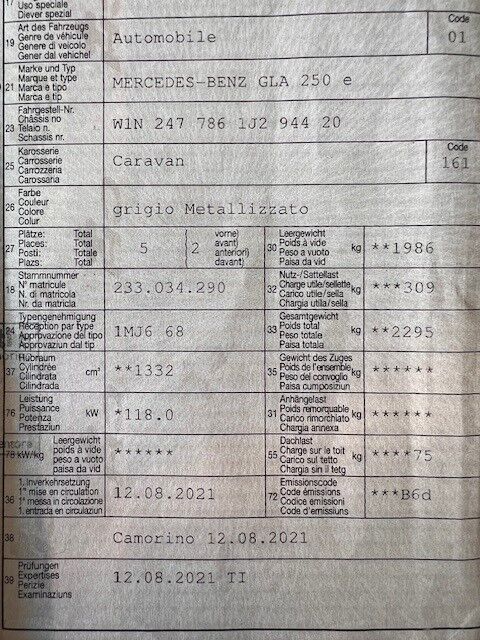 17
Uso speciale
Diever spezial
19
Art des Fahrzeugs
Genre de véhicule
Genere di veicolo
Gener dal vehichel
Automobile
Code
01
21
Marke und Typ
Marque et type
Marca e tipo
Marca e tip
MERCEDES-BENZ GLA 250 e
23
Fahrgestell-Nr.
Châssis no
Telaio n.
Schassis nr.
W1N 247 786 1J2 944 20
25
Karosserie
Carrosserie
Carrozzeria
Carossaria
Caravan
Code
161
26
Farbe
Couleur
Colore
Colur
grigio Metallizzato
27
Plätze: Total
Places: Total
Posti: Totale
Plazs: Total
5
2
vorne)
avant)
anteriori)
davant)
30
Leergewicht
Poids à vide
Peso a vuoto
Paisa da vid
kg
**1986
18
Stammnummer
N° matricule
N. di matricola
Nr. da matricla
233.034.290
32
Nutz-/Sattellast
Charge utile/sellette
Carico utile/sella
Chargia utila/sella
kg
***309
24
Typengenehmigung
Réception par type
Approvazione del tipo
Approvaziun dal tip
1MJ6 68
33
Gesamtgewicht
Poids total
Peso totale
Paisa totala
kg
**2295
37
Hubraum
Cylindrée
Cilindrata
Cilindrada
cm³
**1332
35
Gewicht des Zuges
Poids de l'ensemble
Peso del convoglio
Paisa cumposiziun
kg
******
76
Leistung
Puissance
Potenza
Prestaziun
kW
*118.0
31
Anhängelast
Poids remorquable
Carico rimorchiato
Chargia annexa
kg
******
78 kW/kg
Leergewicht
poids à vide
peso a vuoto
paisa da vid
******
55
Dachlast
Charge sur le toit
Carico sul tetto
Chargia sin il tetg
kg
****75
36
1. Inverkehrsetzung
1re mise en circulation
1a messa in circolazione
1. entrada en circulaziun
12.08.2021
72
Emissionscode
Code émissions
Codice emissioni
Code d'emissiuns
***B6d
38
Camorino 12.08.2021
39
Prüfungen
Expertises
Perizie
Examinaziuns
12.08.2021 TI